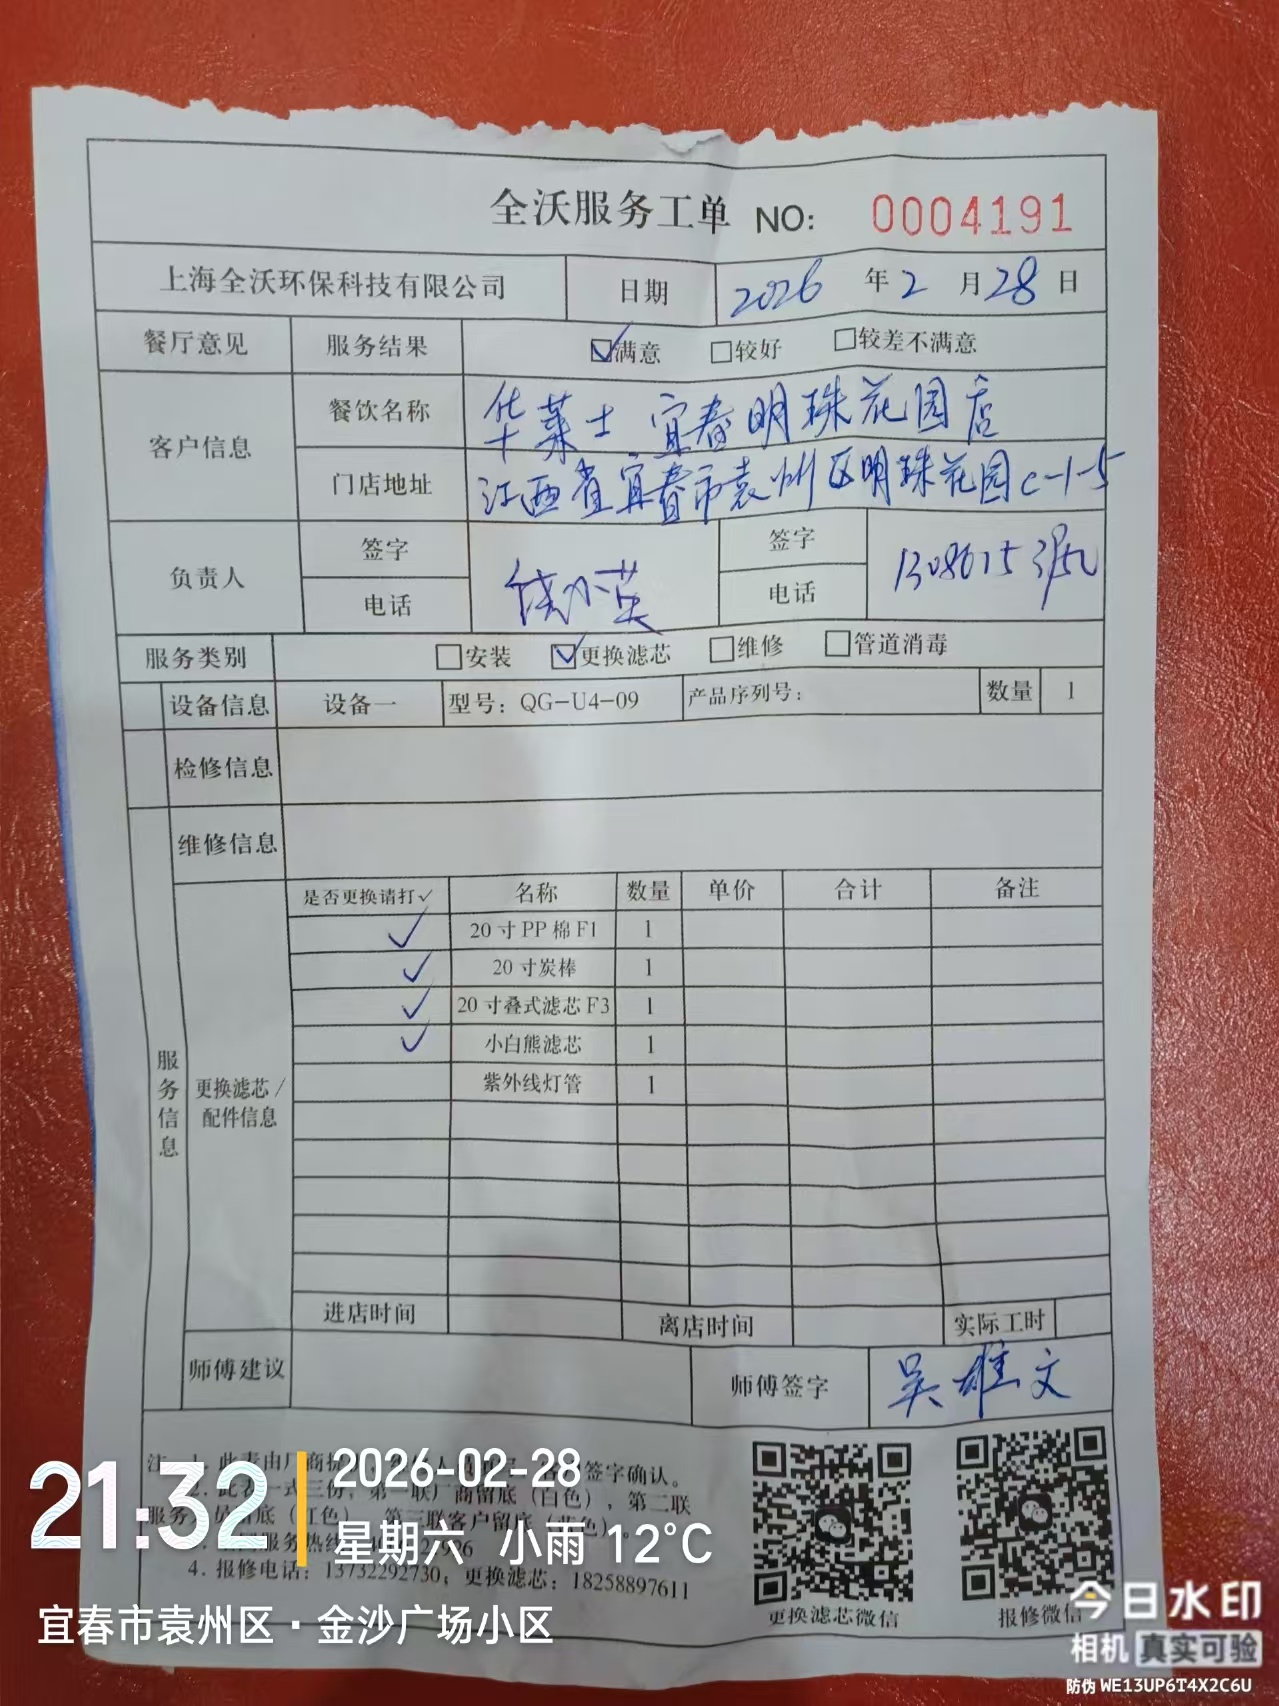 全沃服务工单 NO: 0004191
上海全沃环保科技有限公司 日期 2026 年 2 月 28 日
餐厅意见 服务结果 ☑满意 □较好 □较差不满意
客户信息 餐饮名称 华莱士 宜春明珠花园店
门店地址 江西省宜春市袁州区明珠花园c-1-5
负责人 签字 签字
电话 小英 电话 1308615
服务类别 □安装 ☑更换滤芯 □维修 □管道消毒
设备信息 设备一 型号：QG-U4-09 产品序列号： 数量 1
检修信息
维修信息
服务信息
更换滤芯/配件信息
是否更换请打✓ 名称 数量 单价 合计 备注
✓ 20寸PP棉F1 1
✓ 20寸炭棒 1
✓ 20寸叠式滤芯F3 1
✓ 小白熊滤芯 1
紫外线灯管 1
进店时间 离店时间 实际工时
师傅建议 师傅签字 吴雄文
注 1. 此表由厂商 签字确认。
2. 此表一式三份，第一联厂商留底（白色），第二联
服务 留底（红色），第三联客户留底
服务热线
4. 报修电话：13732292730；更换滤芯：18258897611
更换滤芯微信 报修微信
21:32 2026-02-28
星期六 小雨 12°C
宜春市袁州区·金沙广场小区
今日水印
相机 真实可验
防伪 WE13UP6T4X2C6U